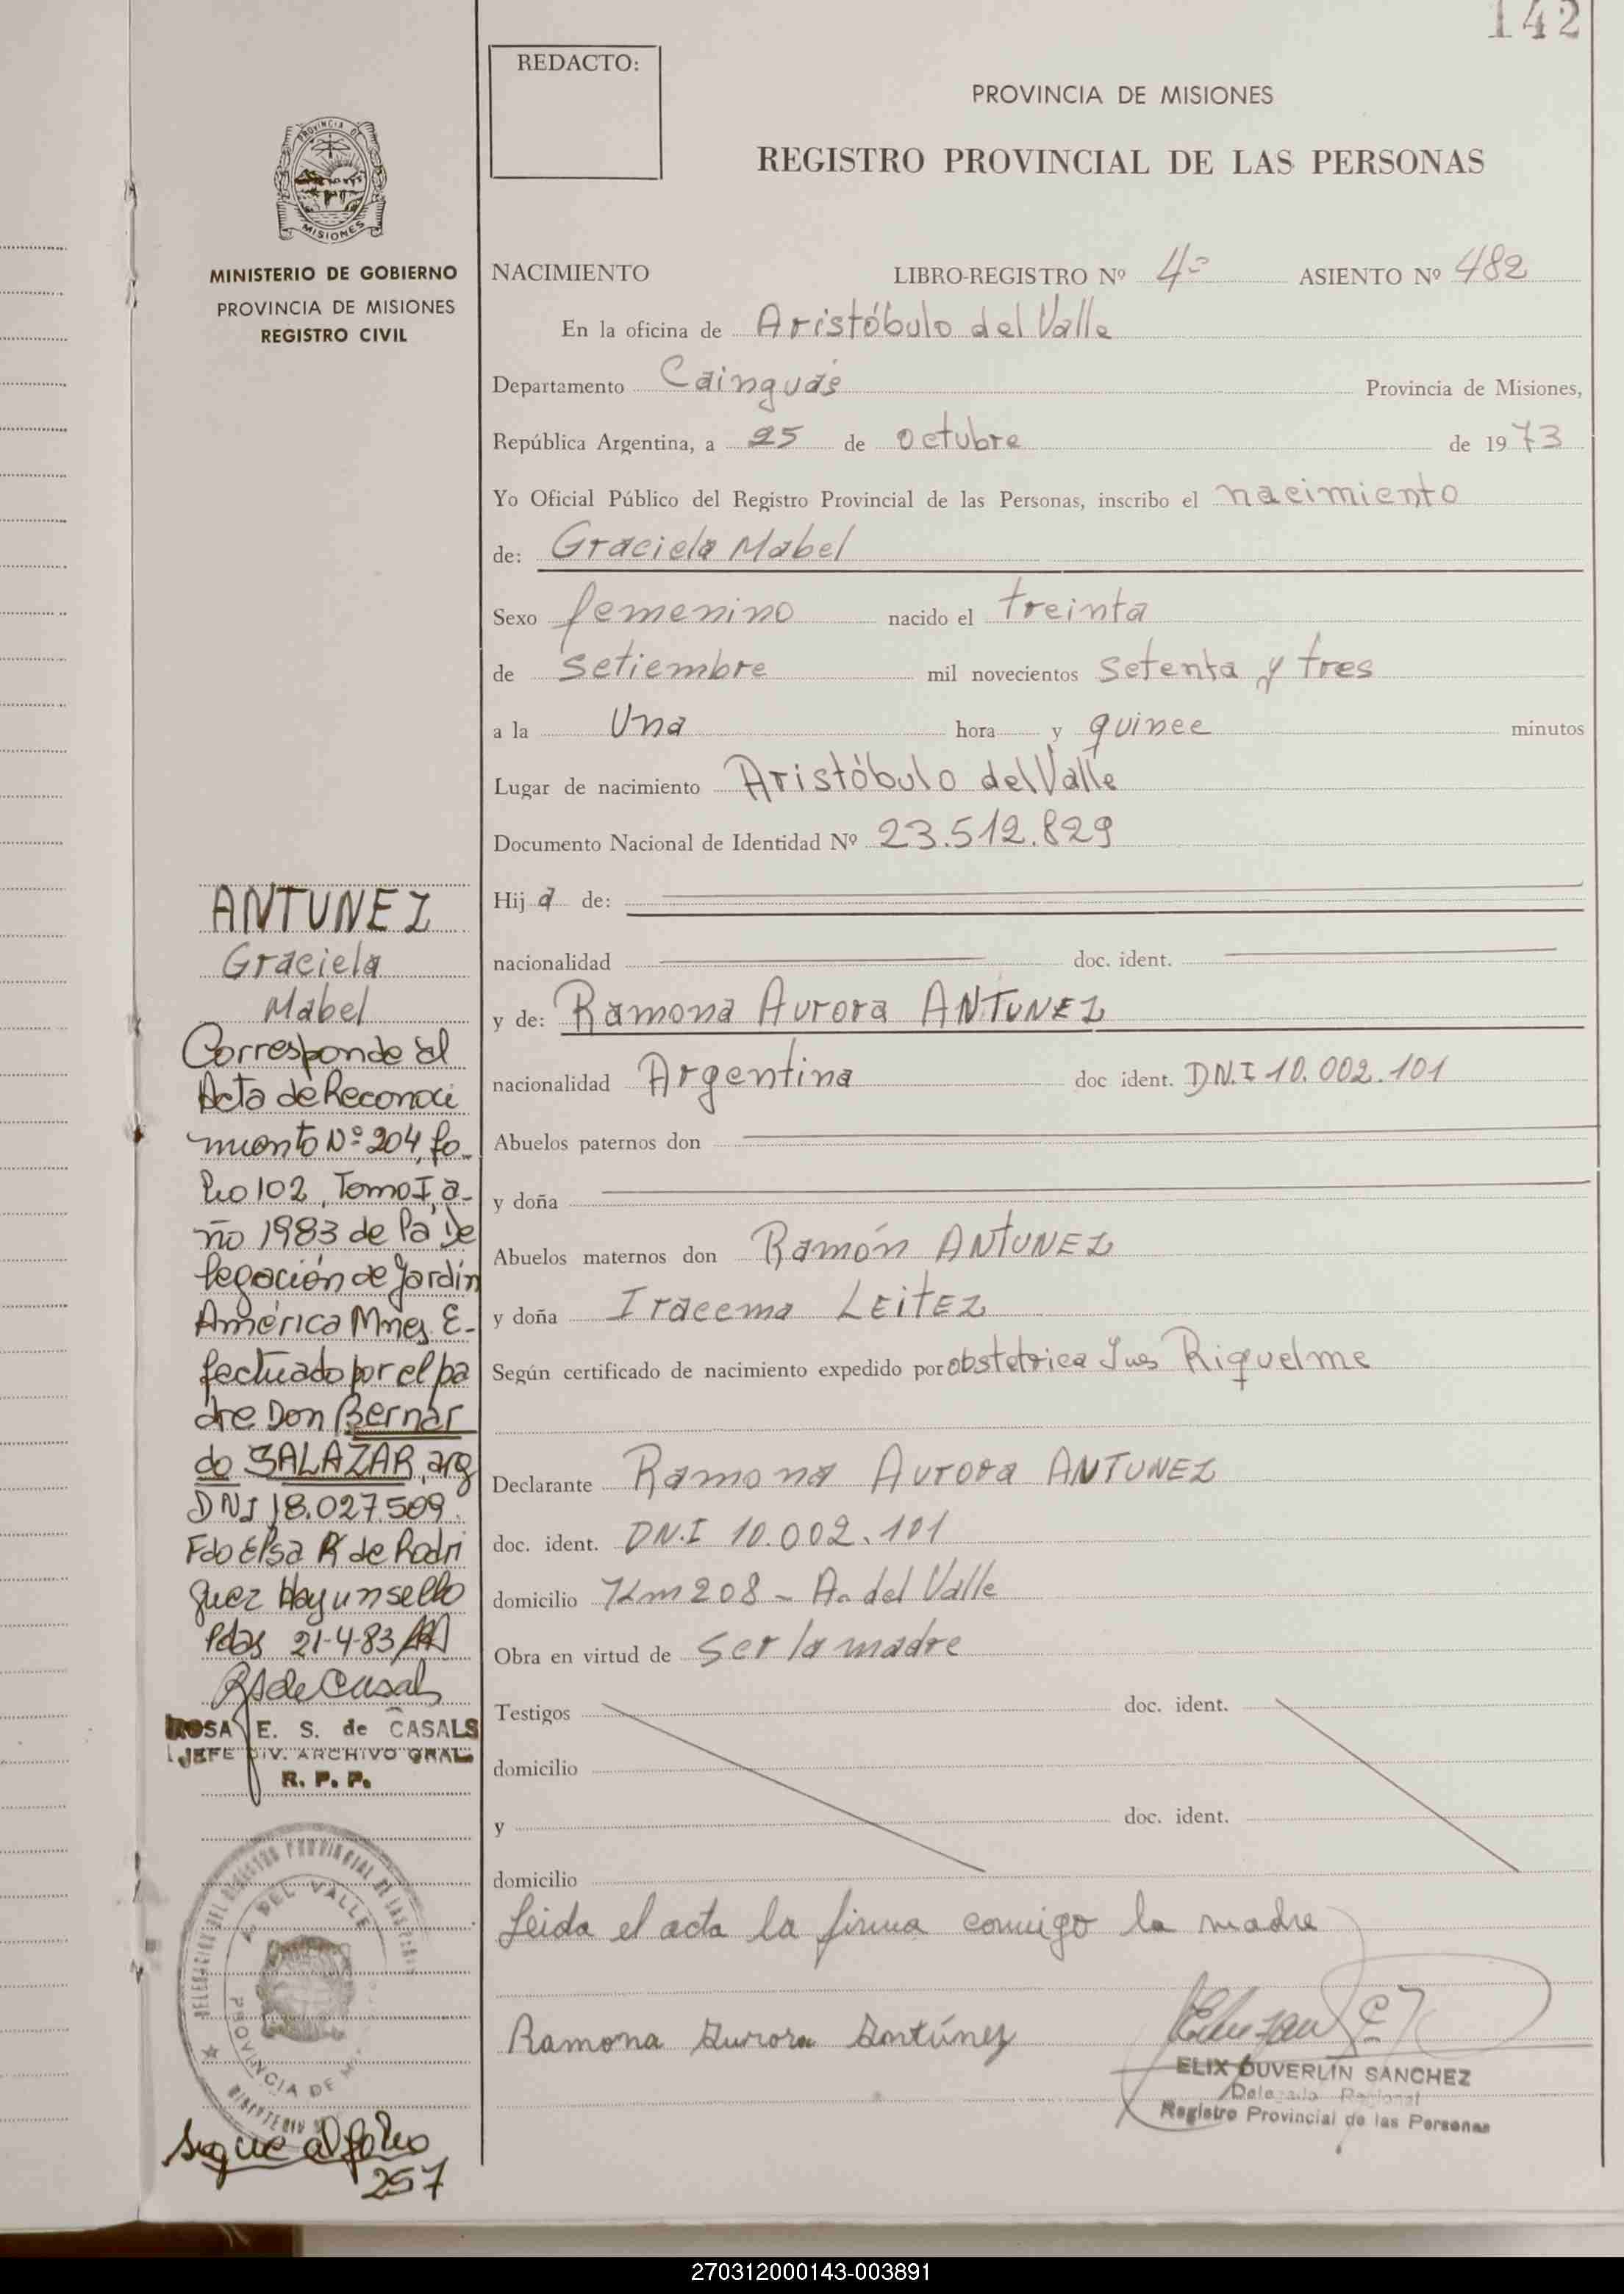 142
REDACTO:
PROVINCIA DE MISIONES
REGISTRO PROVINCIAL DE LAS PERSONAS
PROVINCIA DE
MISIONES
MINISTERIO DE GOBIERNO
PROVINCIA DE MISIONES
REGISTRO CIVIL
NACIMIENTO LIBRO-REGISTRO Nº 4º ASIENTO Nº 482
En la oficina de Aristóbulo del Valle
Departamento Cainguás Provincia de Misiones,
República Argentina, a 25 de octubre de 1973
Yo Oficial Público del Registro Provincial de las Personas, inscribo el nacimiento
de: Graciela Mabel
Sexo femenino nacido el treinta
de setiembre mil novecientos setenta y tres
a la Una hora y quince minutos
Lugar de nacimiento Aristóbulo del Valle
Documento Nacional de Identidad Nº 23.512.829
Hija de:
nacionalidad doc. ident.
y de: Ramona Aurora ANTUNEZ
nacionalidad Argentina doc ident. DN.I 10.002.101
Abuelos paternos don
y doña
Abuelos maternos don Ramón ANTUNEZ
y doña Iracema LEITEZ
Según certificado de nacimiento expedido por obstetrica Riquelme
Declarante Ramona Aurora ANTUNEZ
doc. ident. DN.I 10.002.101
domicilio Km 208 - A. del Valle
Obra en virtud de ser la madre
Testigos doc. ident.
domicilio
y doc. ident.
domicilio
Leida el acta la firma conmigo la madre
Ramona Aurora Antúnez
ELIX DUVERLIN SANCHEZ
Delegado Regional
Registro Provincial de las Personas
ANTUNEZ
Graciela
Mabel
Corresponde al
Acta de Reconoci
miento Nº 204, fo-
lio 102, Tomo I, a-
ño 1983 de la De
legación de Jardín
América Mnes. E-
fectuado por el pa
dre Don Bernar
do SALAZAR, arg
DNI 18.027.509.
Fdo Elsa R de Rodri
guez Hay un sello
Pdas 21-4-83
RS de Casals
ROSA E. S. de CASALS
JEFE DIV. ARCHIVO GRAL.
R. P. P.
DELEGACION DEL REGISTRO PROVINCIAL DE LAS PERSONAS
Aº DEL VALLE
PROVINCIA DE M.
MINISTERIO
sigue al folio
257
270312000143-003891